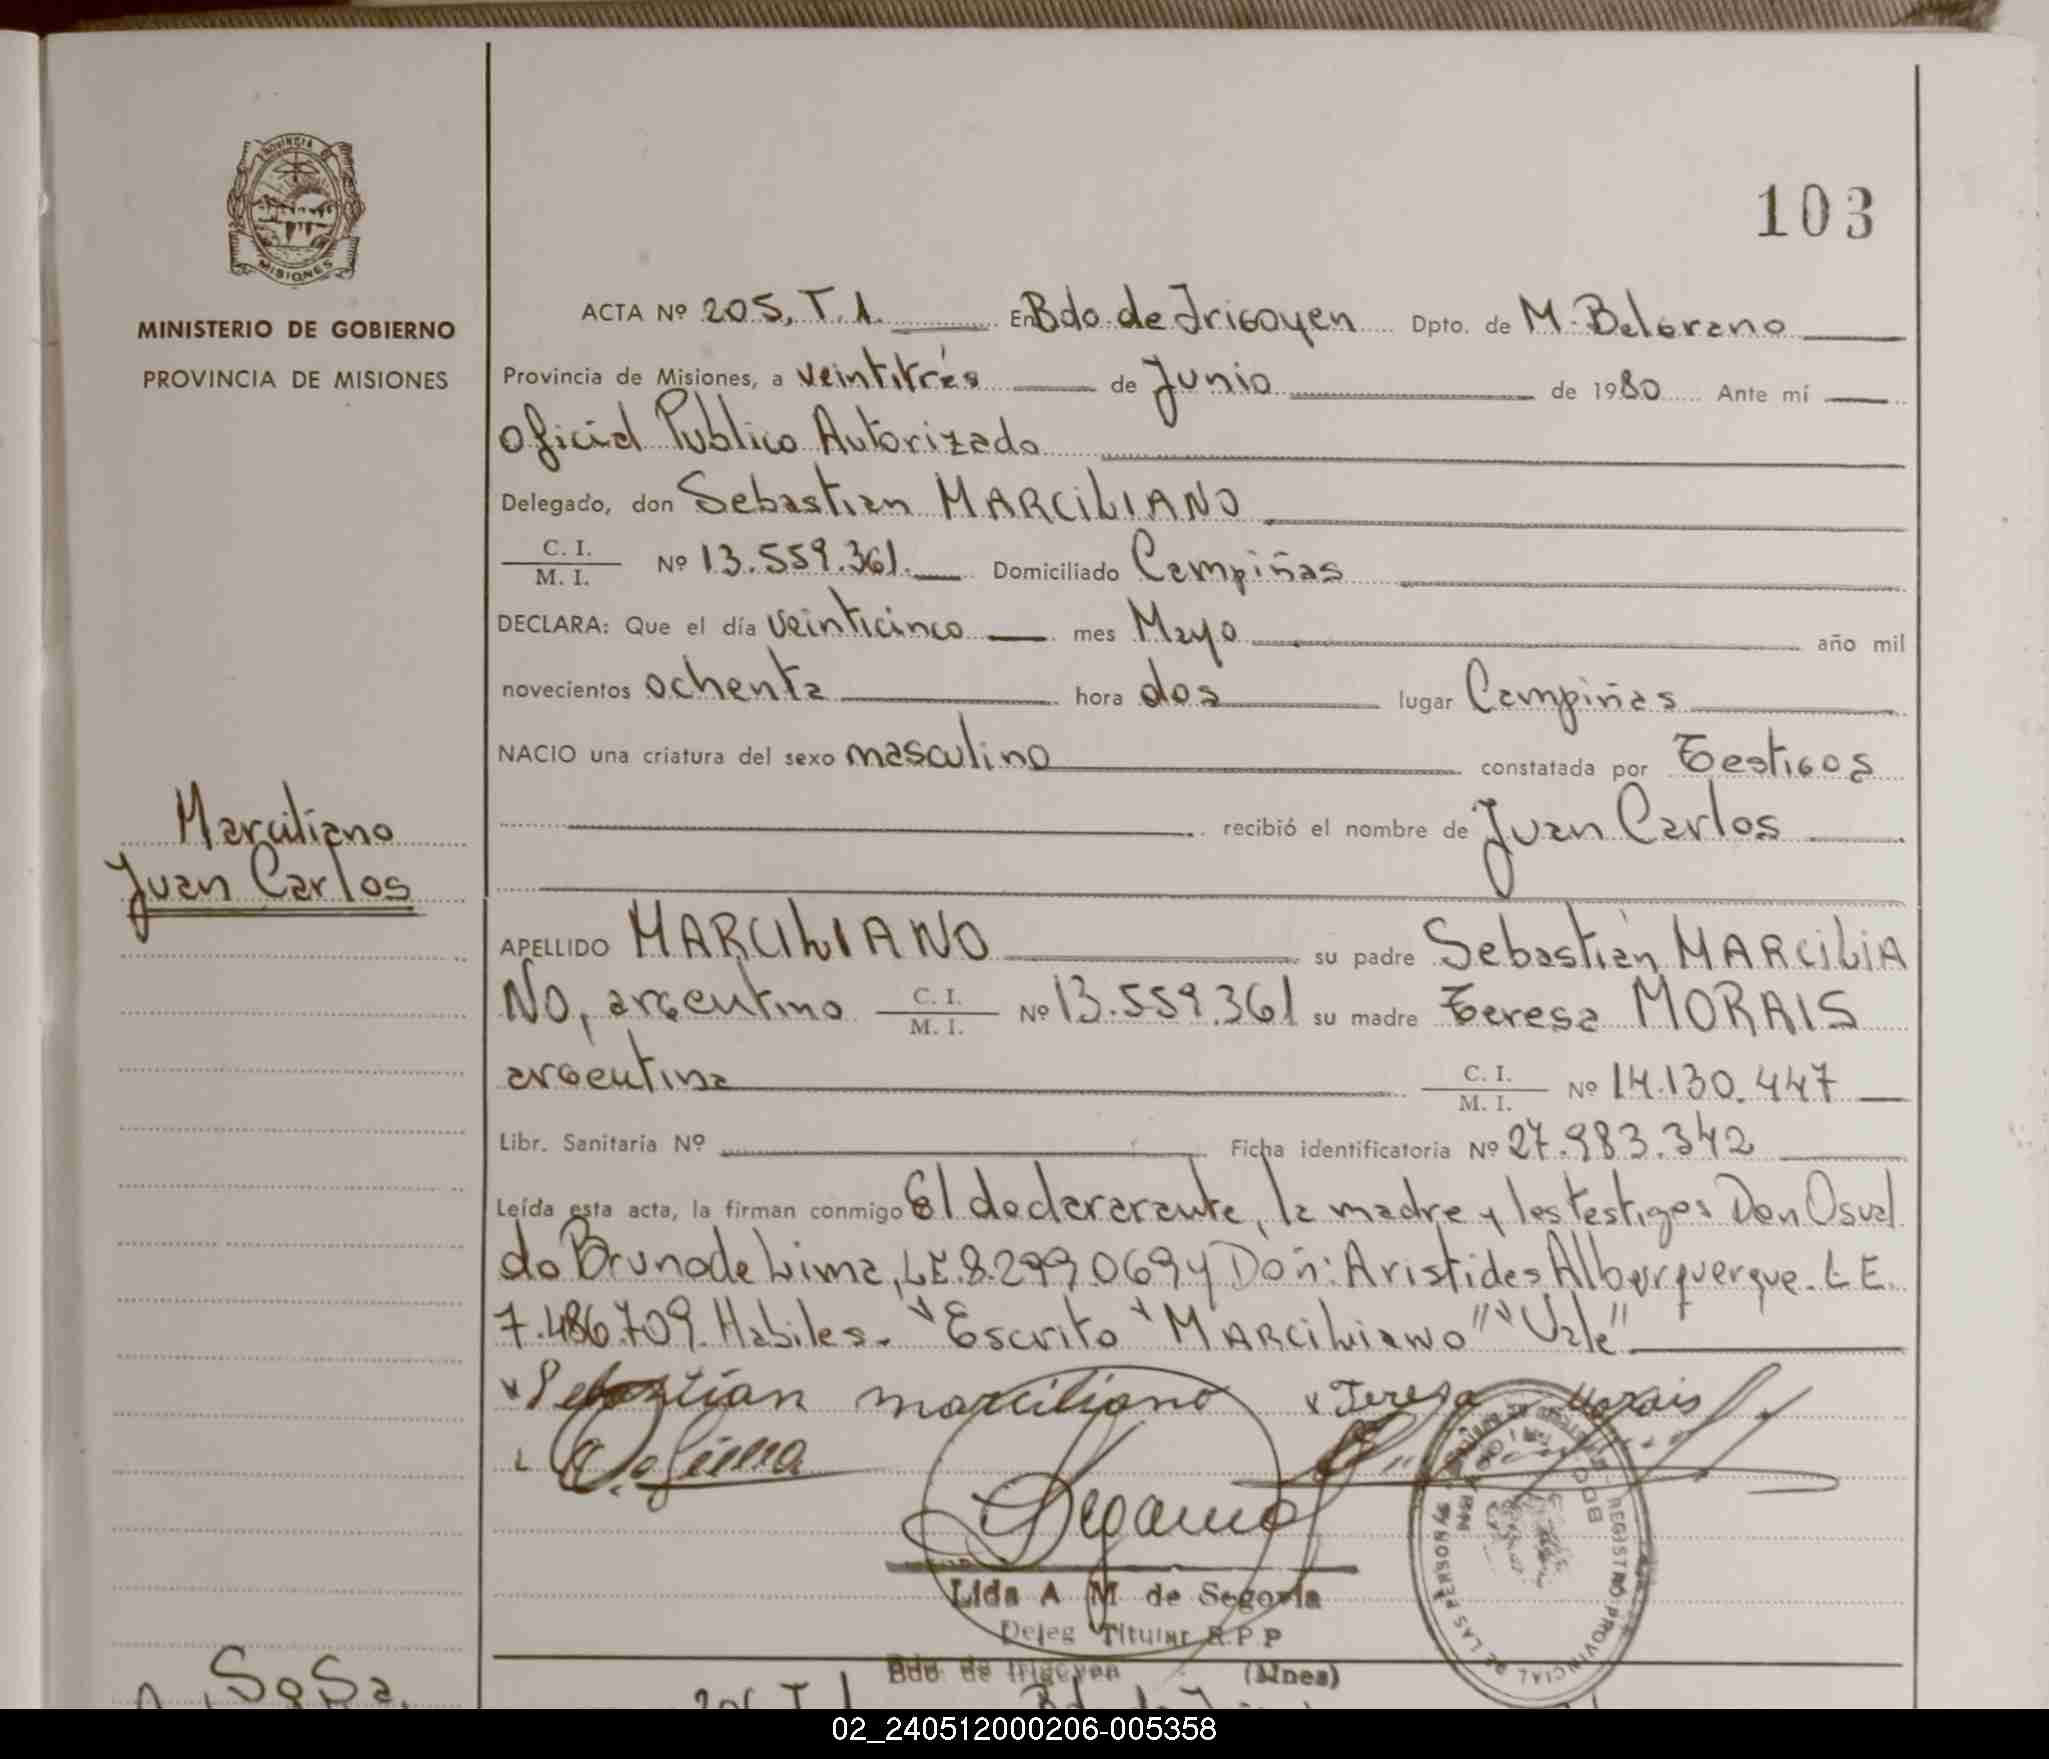 PROVINCIA D
MISIONES
MINISTERIO DE GOBIERNO
PROVINCIA DE MISIONES
Marciliano
Juan Carlos
103
ACTA Nº 205, T. 1. En Bdo. de Irigoyen Dpto. de M. Belgrano
Provincia de Misiones, a veintitrés de Junio de 1980 Ante mí
Oficial Publico Autorizado
Delegado, don Sebastian MARCILIANO
C. I.
M. I. Nº 13.559.361. Domiciliado Campiñas
DECLARA: Que el día veinticinco mes Mayo año mil
novecientos ochenta hora dos lugar Campiñas
NACIO una criatura del sexo masculino constatada por Testigos
recibió el nombre de Juan Carlos
APELLIDO MARCILIANO su padre Sebastián MARCILIA
NO, argentino C. I. M. I. Nº 13.559.361 su madre Teresa MORAIS
argentina C. I. M. I. Nº 14.130.447
Libr. Sanitaria Nº Ficha identificatoria Nº 27.983.342
Leída esta acta, la firman conmigo El declararante, la madre y los testigos Don Osval
do Bruno de Lima, LE.8.299.069 y Don: Aristides Alburquerque. LE.
7.486.709. Habiles. "Escrito "MARCILIANO" "Vale"
Sebastian marciliano Teresa Morais
O. de Lima
Lida A M de Segovia
Deleg Titular R.P.P
Bdo de Irigoyen (Mnes)
REGISTRO PROVINCIAL DE LAS PERSONAS
Sosa
205 T. 1
02_240512000206-005358